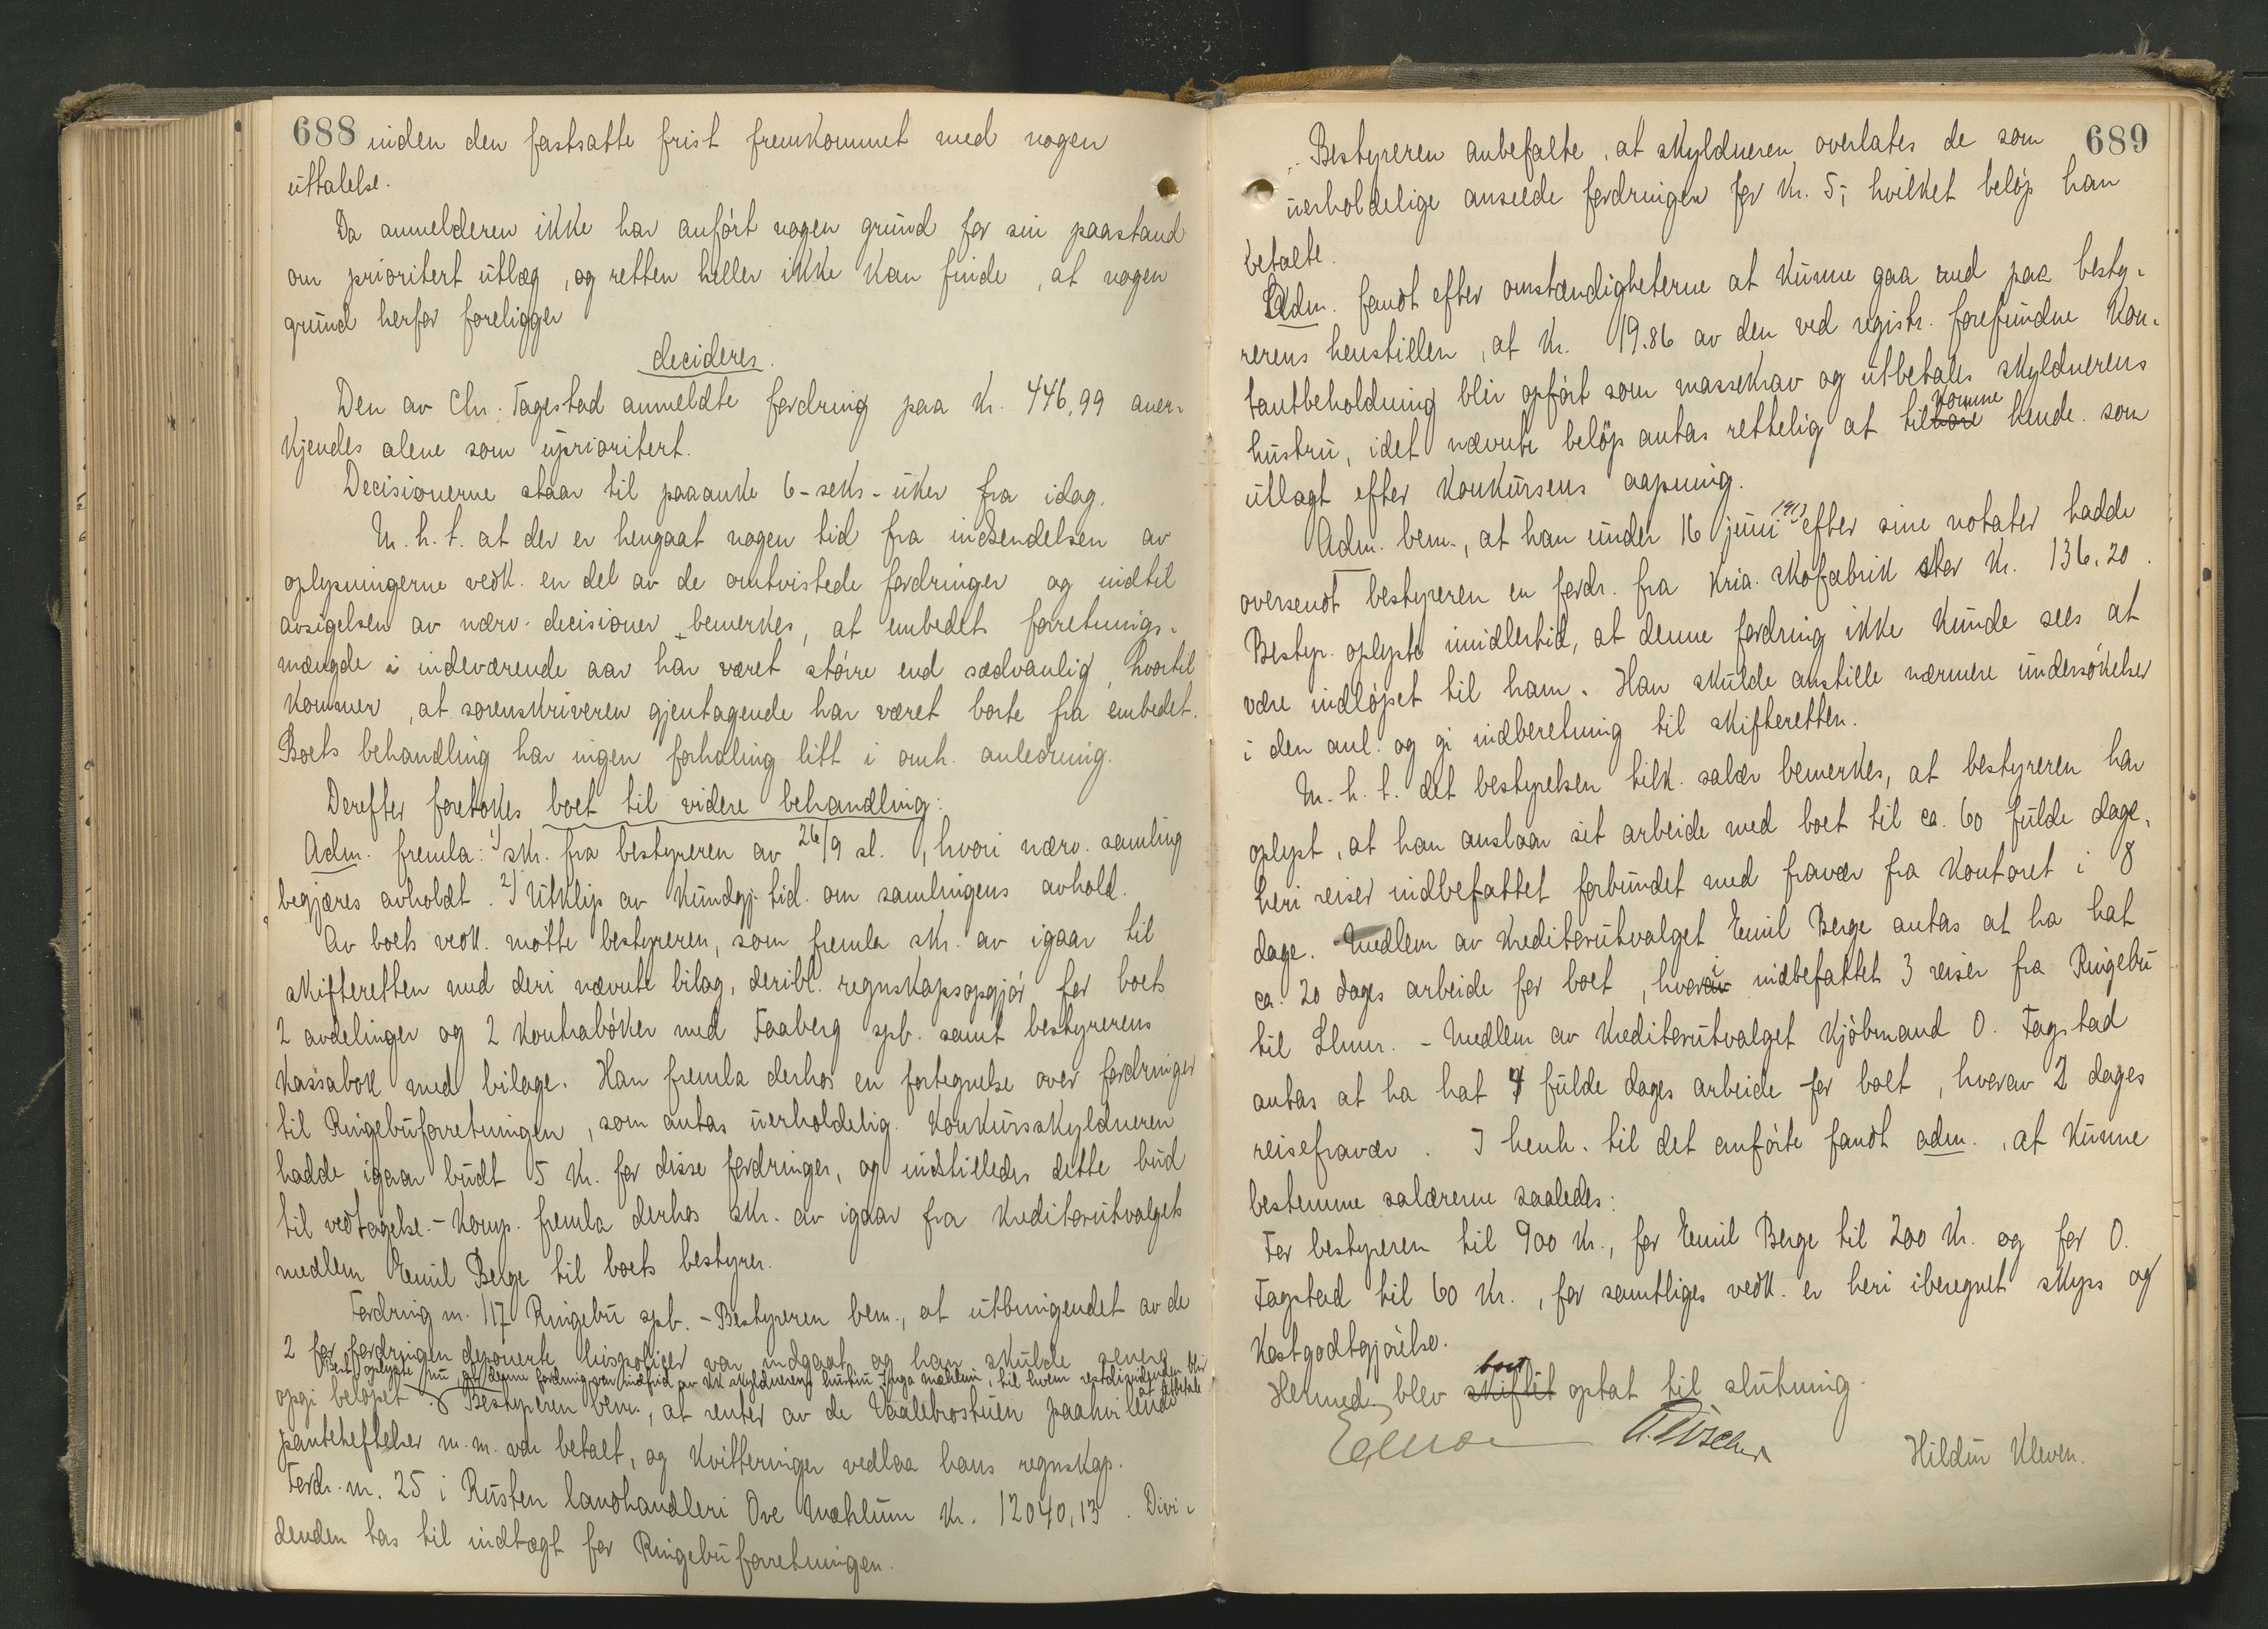 688 inden den fastsatte frist fremkommet med nogen
uttalelse.
Da anmelderen ikke har anført nogen grund for sin paastand
om prioritert utlæg, og retten heller ikke kan finde, at nogen
grund herfor foreligger
decideres.
Den av Chr. Fagestad anmeldte fordring paa kr. 446,99 aner-
kjendes alene som uprioritert.
Decisionerne staar til paaanke 6-seks-uker fra idag.
M.h.t. at der er hengaat nogen tid fra indsendelsen av
oplysningerne vedk. en del av de omtvistede fordringer og indtil
avsigelsen av nærv. decisioner bemerkes, at embedets forretnings-
mængde i indeværende aar har været större end sædvanlig, hvortil
kommer, at sorenskriveren gjentagende har været borte fra embedet.
Boets behandling har ingen forhaling litt i omh. anledning.
Derefter foretokes boet til videre behandling:
Adm. fremla: 1) skr. fra bestyreren av 26/9 sl., hvori nærv. samling
begjæres avholdt. 2) Utklip av Kundgj. tid. om samlingens avhold.
Av boets vedk. møtte bestyreren, som fremla skr. av igaar til
skifteretten med deri nævnte bilag, deribl. regnskapsopgjør for boets
2 avdelinger og 2 kontrabøker med Faaberg spb. samt bestyrerens
kassabok med bilage. Han fremla derhos en fortegnelse over fordringer
til Ringebuforretningen, som antas uerholdelig. Konkursskyldneren
hadde igaar budt 5 kr. for disse fordringer, og indstilledes dette bud
til vedtagelse. - Komp. fremla derhos skr. av igaar fra kreditorutvalgets
medlem Emil Berge til boets bestyrer.
Fordring nr. 117 Ringebu spb. - Bestyreren bem., at utbringendet av de
2 for fordringen deponerte livspoliser var indgaat og han skulde senere
Best. oplyste nu, at denne fordring var indfrid av kk skyldnerens hustru Inga Mæhlum, til hvem restdividenden blir
at utbetale
opgi beløpet. Bestyreren bem., at renter av de Vaalebrostuen paahvilende
panteheftelser m.m. var betalt, og kvitteringer vedlaa hans regnskap.
Fordr. nr. 25 i Rusten landhandleri Ove Mæhlum kr. 12040,13. Divi-
denden tas til indtægt for Ringebuforretningen.
689
Bestyreren anbefalte, at skyldneren overlates de som
uerholdelige anseede fordringer for kr. 5,- hvilket beløp han
betalte.
Adm. fandt efter omstændigheterne at kunne gaa med paa besty-
rerens henstillen, at kr. 19.86 av den ved registr. forefundne kon-
tantbeholdning blir opført som massekrav og utbetales skyldnerens
komme
hustru, idet nævnte beløp antas rettelig at tilhøre hende som
utlagt efter konkursens aapning.
1913
Adm. bem., at han under 16 juni efter sine notater hadde
oversendt bestyreren en fordr. fra Kria. Skofabrik stor kr. 136.20.
Bestyr. oplyste imidlertid, at denne fordring ikke kunde sees at
være indløpet til ham. Han skulde anstille nærmere undersøkelser
i den anl. og gi indberetning til skifteretten.
M.h.t. det bestyrelsen tilk. salær bemerkes, at bestyreren har
oplyst, at han anslaar sit arbeide med boet til ca. 60 fulde dage,
heri reiser indbefattet forbundet med fravær fra kontoret i 8
dage. Medlem av kreditorutvalget Emil Berge antas at ha hat
ca. 20 dages arbeide for boet, hvori indbefattet 3 reiser fra Ringebu
til Lhmr. - Medlem av kreditorutvalget kjøbmand O. Fagstad
antas at ha hat 4 fulde dages arbeide for boet, hvorav 2 dages
reisefravær. I henh. til det anførte fandt adm., at kunne
bestemme salærerne saaledes:
For bestyreren til 900 kr., for Emil Berge til 200 kr. og for O.
Fagstad til 60 kr., for samtliges vedk. er heri iberegnet skyss og
kostgodtgjørelse.
boet
Hermed blev skiftet optat til slutning.
Hildur Kleven.